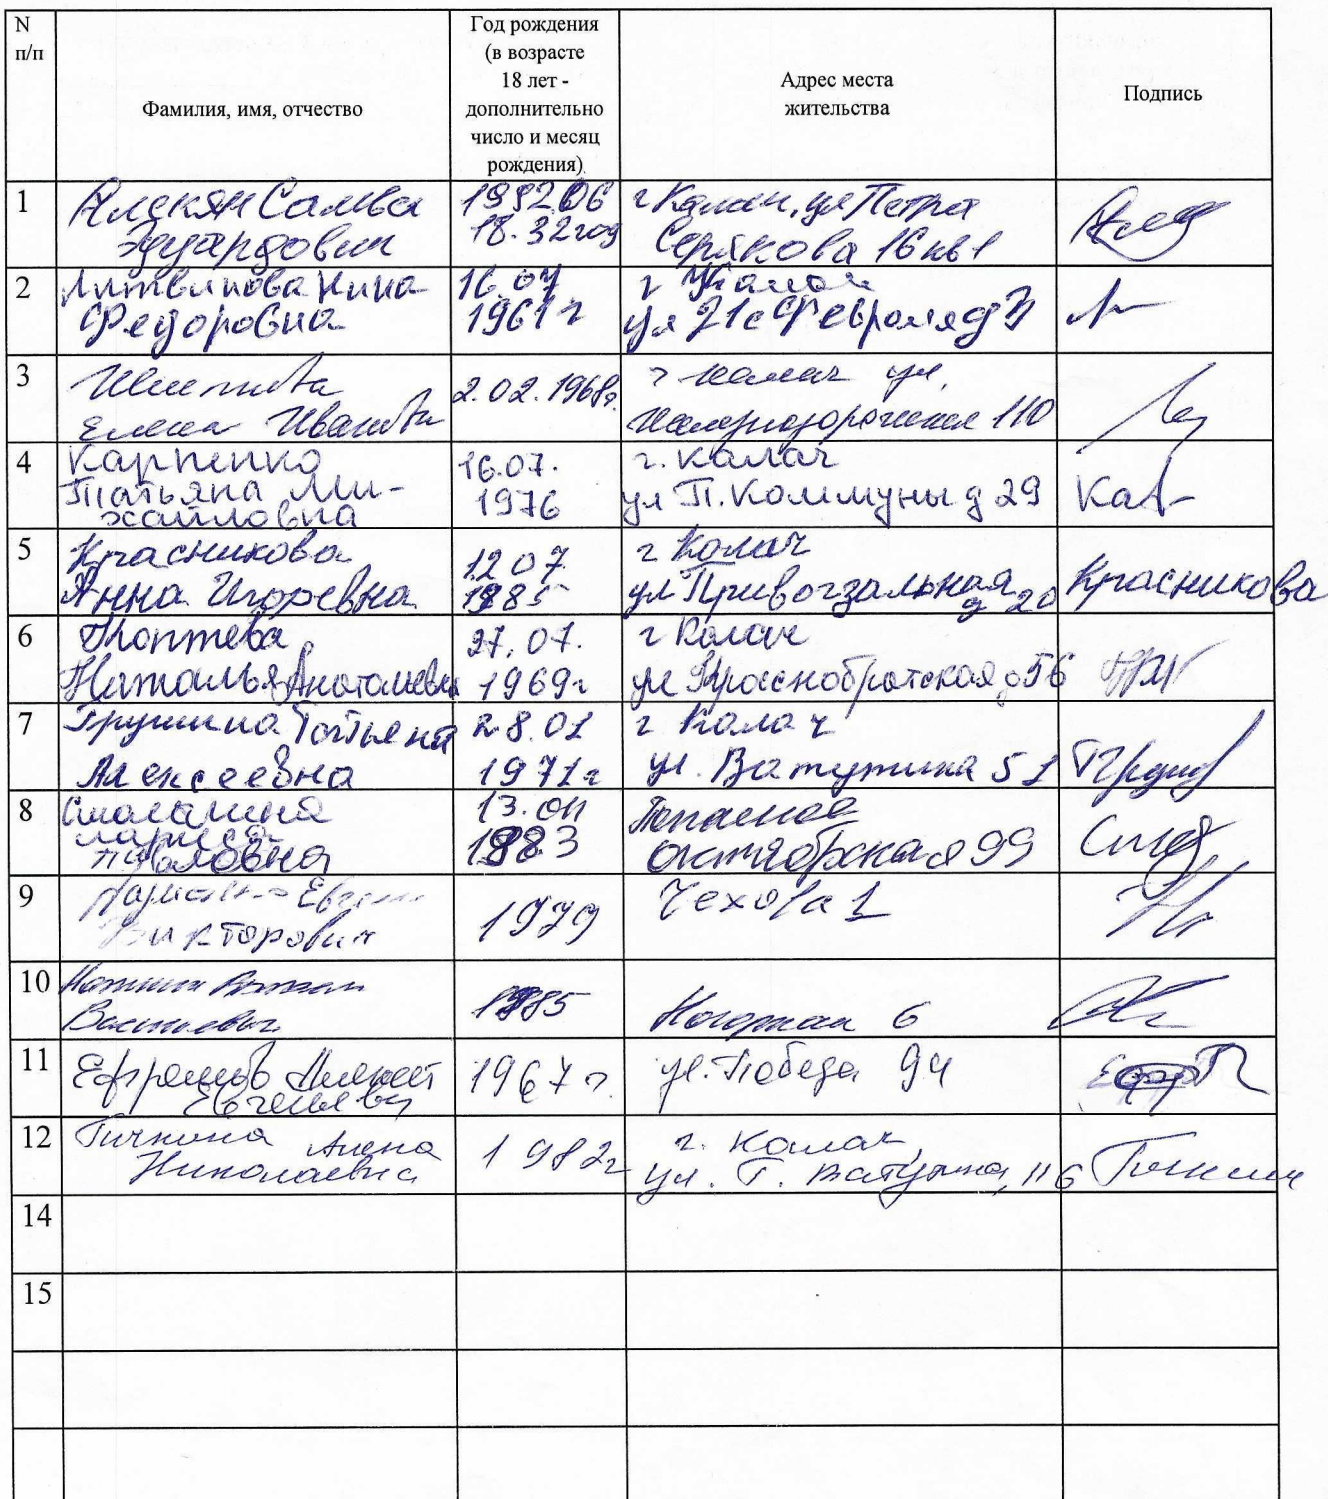 N
п/п
Фамилия, имя, отчество
Год рождения
(в возрасте
18 лет -
дополнительно
число и месяц
рождения)
Адрес места
жительства
Подпись
1
Алекян Самвел
Эдуардович
199206
18. 32 год
г Калач, ул Петра
Серякова 16 кв 1
2
Литвинова Нина
Федоровна
16 07
1961 г
г Калач
ул 21е Февраля д
3
Елена Ивановна
2.02.1968г.
г Калач ул.
Железнодорожная 110
4
Карпенко
Татьяна Ми-
хайловна
16.07.
1976
г. Калач
ул П. Коммуны д 29
5
Красникова
Анна Игоревна
12 07
1985
г Калач
ул Привогзальная
д 20
Красникова
6
Коптева
Наталья Анатолиевна
27.07.
1969г
г Калач
ул Краснобратская д 56
7
Грушина Татьяна
Алексеевна
28.01
1971г
г Калач
ул. Ватутина 51
8
Лариса
Павловна
13.04
1983
октябрьская 99
9
Евгений
Викторович
1979
Чехова 1
10
Васильевич
1985
6
11
Ефремов Алексей
Евгеньевич
1967г.
ул. Победа 94
12
Тичкина Алена
Николаевна
1982г
г. Калач,
ул. Г. Ватутина, 116
14
15